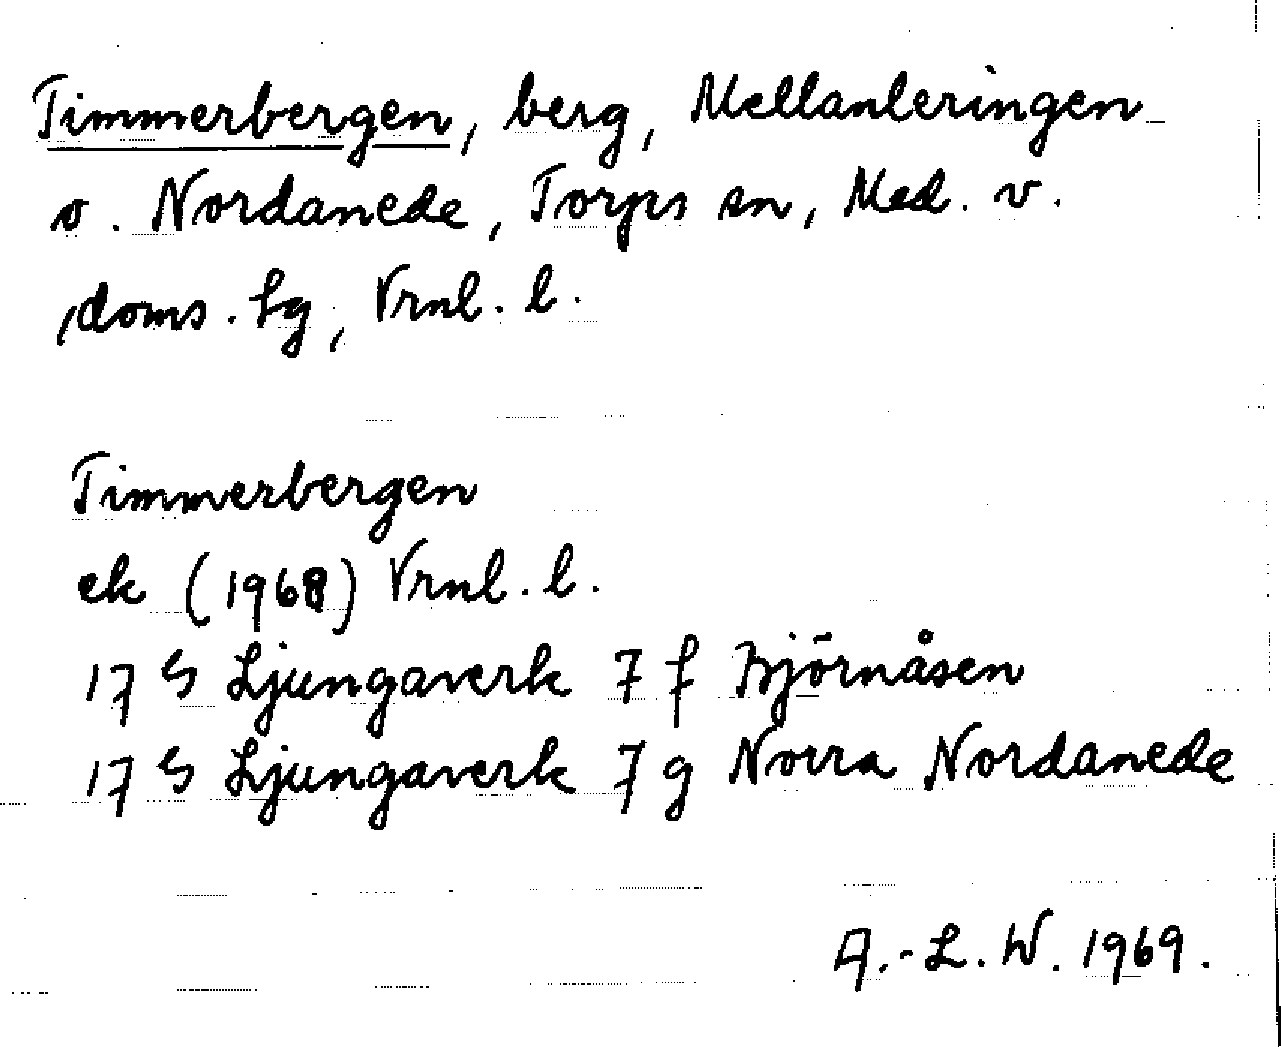 Timmerbergen, berg, Mellanleringen
o. Nordanede, Torps sn, Med. v.
doms. tg, Vrnl. l.
Timmerbergen
ek (1968) Vrnl. l.
17 G Ljungaverk 7 f Björnåsen
17 G Ljungaverk 7 g Norra Nordanede
A.-L. W. 1969.